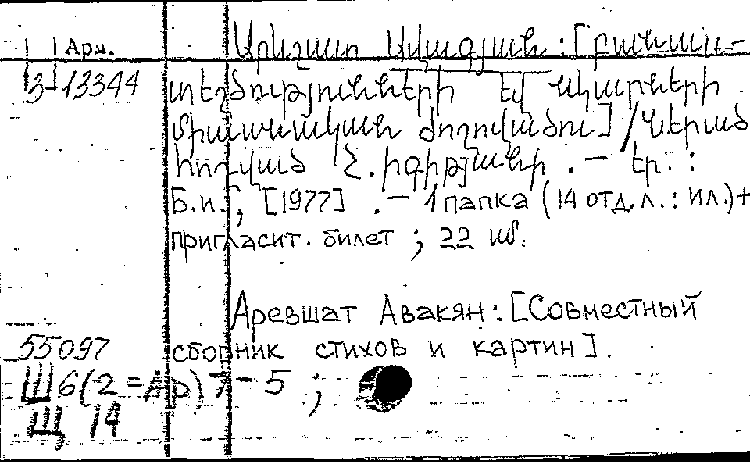 Арм. Արևշատ Ավագյան : [Բանաս-
3-13344 տեղծությունների եվ նկարների
միասնական ժողովածու] /Ներած.
հոդված Հ.Իգիթյանի . — Եր. :
Б.и., [1977] . — 1 папка (14 отд.л. : ил.)+
пригласит. билет ; 22 սմ.
Аревшат Авакян : [Совместный
55097 сборник стихов и картин].
Ш6(2=Ар)7-5 ;
Щ 14